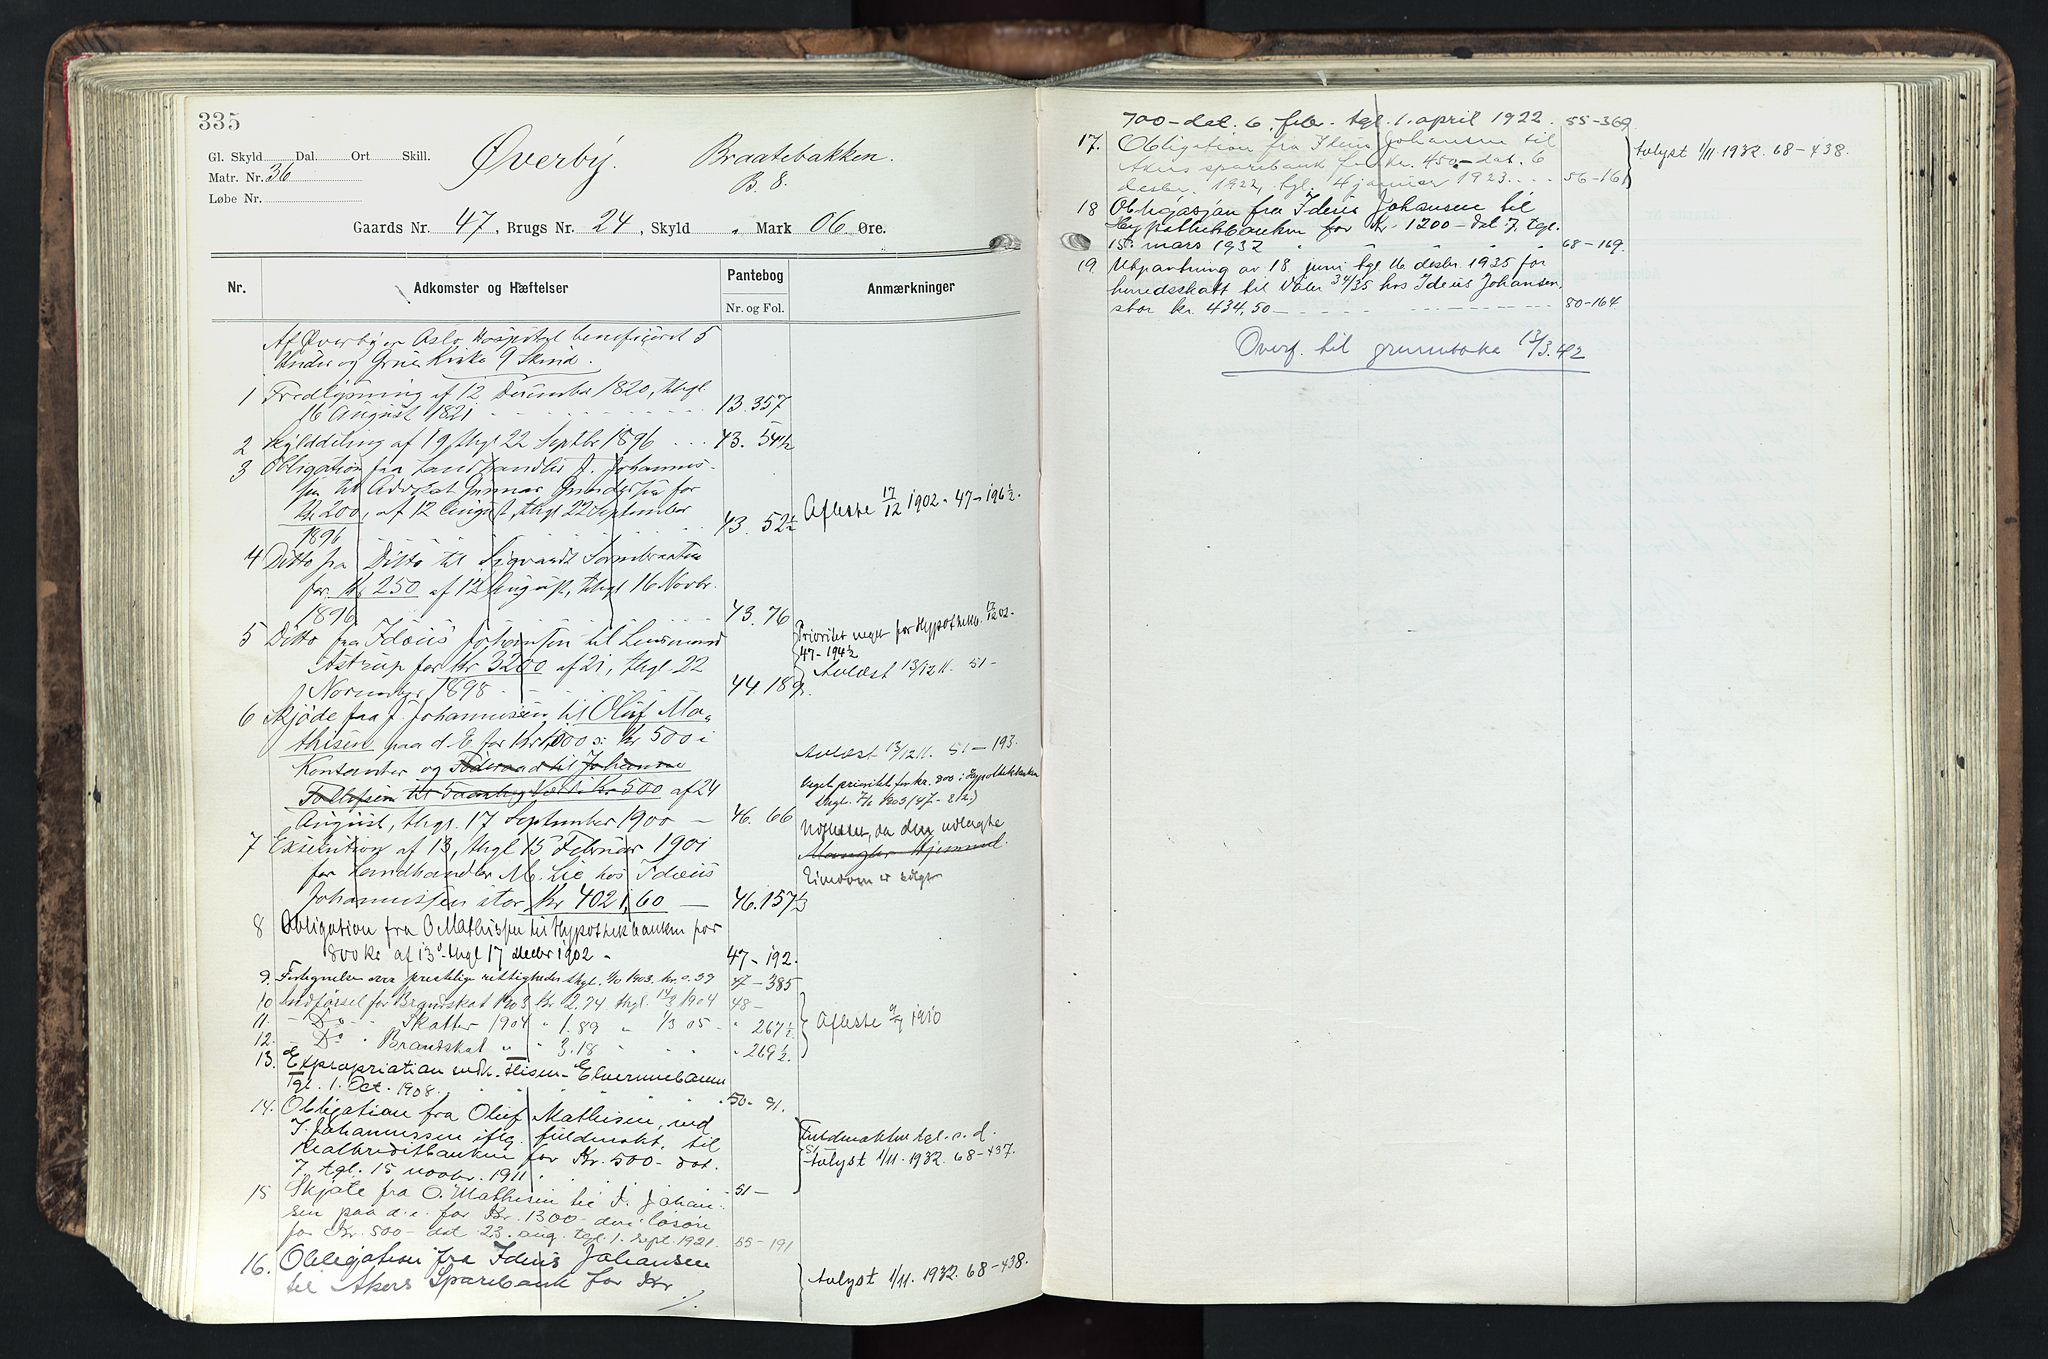 335
Gl. Skyld Dal. Ort Skill.
Matr. Nr. 36
Løbe Nr.
Øverby. Braatebakken.
B. 8.
Gaards Nr. 47, Brugs Nr. 24, Skyld " Mark 06 Øre.
Nr. Adkomster og Hæftelser Pantebog Anmærkninger
Nr. og Fol.
Af Øverby er Oslo Hospital beneficeret 5
og Grue Kirke 9 Skind.
1 Fredlysning af 12 December 1820, thgl
16 August 1821 13. 357
2 Skylddeling af 19 thgl 22 Septbr 1896 43. 54½
3 Obligation fra Landhandler J. Johannis-
sen til Advokat Gunnar for
Kr 200, af 12 August, thgl 22 September
1896 43 52½ Aflæste 17/12 1902 - 47 - 196½.
4 Ditto fra Ditto til Sigvardt
for Kr 250 af 12 August, thgl 16 Novbr.
1896 43. 76
5 Ditto fra Idæus Johannsen til Lensmand
Astrup for Kr 3200 af 21, thgl 22
November 1898 44. 189.
Prioritet veget for Hypothekb. 17/12 02.
47 - 194½
Avlæst 13/12 11. 51 -
6 Skjøde fra J. Johannissen til Oluf Ma-
thisen paa d. E for Kr 1,000 s: Kr 500 i
Kontanter og Føderaad til Johanne
Tollefsen til Kr 500 af 24
August, thgl. 17 September 1900 — 46. 66
Avlæst 13/12 11. 51 - 193.
Veget prioritet for kr. 800 i Hypothekbanken
thgl. 1903 (47 - 212)
7 Execution af 13, thgl 15 Februar 1901
for Landhandler M. Lie hos Idæus
Johannissen stor Kr 4021,60 — 46. 157½
Udslettet, da den udlagte
Mangler Hjemmel.
Eiendom er solgt
8 Obligation fra O Mathissen til Hypothekbanken for
800 Kr af 13 thgl 17 decbr 1902 - 47 - 192.
9. Fortegnelse over prestelige rettigheder thgl. 1903. 47 - 385
10 Indførsel for Brandskat 1903 Kr 2.74 thgl. 17/3 1904 48 -
11. - Do - Skatter 1904 " 1.89 " 1/3 05 - " 267½
12. - Do " Brandskat " " 3.18 " " 269½.
Aflæste 1910
13. Expropriation vedk. Flisen - Elverumbanen
tgl. 1. Oct. 1908. 50 - 91.
14. Obligation fra Oluf Mathisen, ved
J. Johannissen iflg. fuldmakt, til
Realkreditbanken for Kr. 500 - dat.
7, tgl. 15 novbr. 1911 51 -
Fuldmakten tgl. s. d.
51 -
Avlyst 1/11. 1932. 68 - 437.
15 Skjøte fra O. Mathisen til I. Johan-
sen paa d. e. for Kr. 1300 - derav løsøre
for Kr. 500 - dat 23. aug. tgl. 1. sept. 1921. 55 - 191
16. Obligation fra Ideus Johansen
til Akers Sparebank for Kr
Avlyst 1/11. 1932. 68 - 438.
700 - dat. 6. febr. tgl. 1. april 1922. 55 - 369.
17. Obligation fra Ideus Johansen til
Akers sparebank for kr. 450 - dat. 6
desbr. 1922, tgl. 4 januar 1923 56 - 161
Avlyst 1/11. 1932. 68 - 438.
18 Obligasjon fra Ideus Johansen til
Hypotekbanken for kr. 1200 - dat 7. tgl.
15. mars 1932 " " " " " 68 - 169.
19. Utpantning av 18. juni tgl. 16. desbr. 1935 for
herredsskatt til Våler 34/35 hos Ideus Johansen
stor kr. 434,50 - 80 - 164
Overf. til grunnboka 13/3. 42